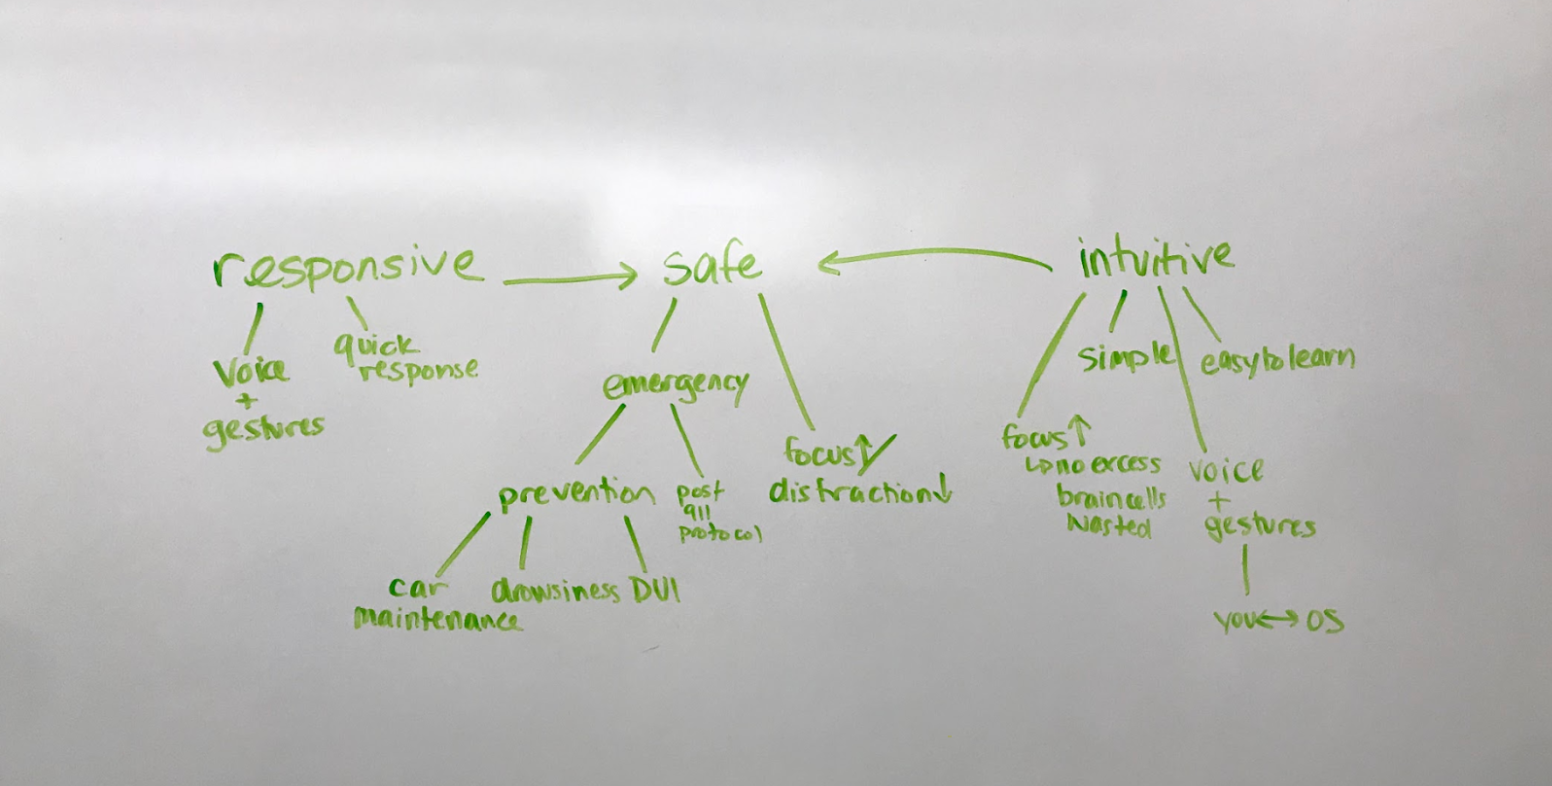 responsive → safe ← intuitive
voice
+
gestures
quick
response
emergency
prevention
car
maintenance
drowsiness
DUI
post
911
protocol
focus↑/
distraction↓
focus↑
↳no excess
braincells
wasted
simple
voice
+
gestures
you↔OS
easy to learn